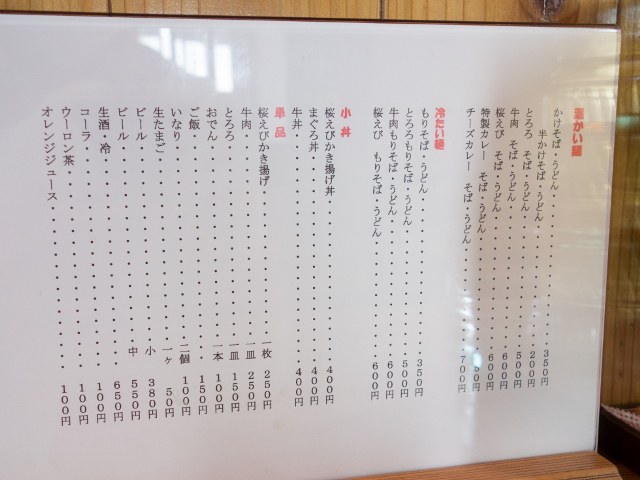 温かい麺
かけそば・うどん 350円
半かけそば・うどん 200円
とろろ そば・うどん 500円
牛肉 そば・うどん 600円
桜えび そば・うどん 600円
特製カレー そば・うどん 50円
チーズカレー そば・うどん 700円
冷たい麺
もりそば・うどん 350円
とろろもりそば・うどん 500円
牛肉もりそば・うどん 600円
桜えび もりそば・うどん 600円
小丼
桜えびかき揚げ丼 400円
まぐろ丼 400円
牛丼 400円
単品
桜えびかき揚げ 一枚 250円
牛肉 一皿 250円
とろろ 一皿 150円
おでん 一本 100円
ご飯 150円
いなり 二個 100円
生たまご 一ヶ 50円
ビール 小 380円
ビール 中 550円
生酒・冷 650円
コーラ 100円
ウーロン茶 100円
オレンジジュース 100円